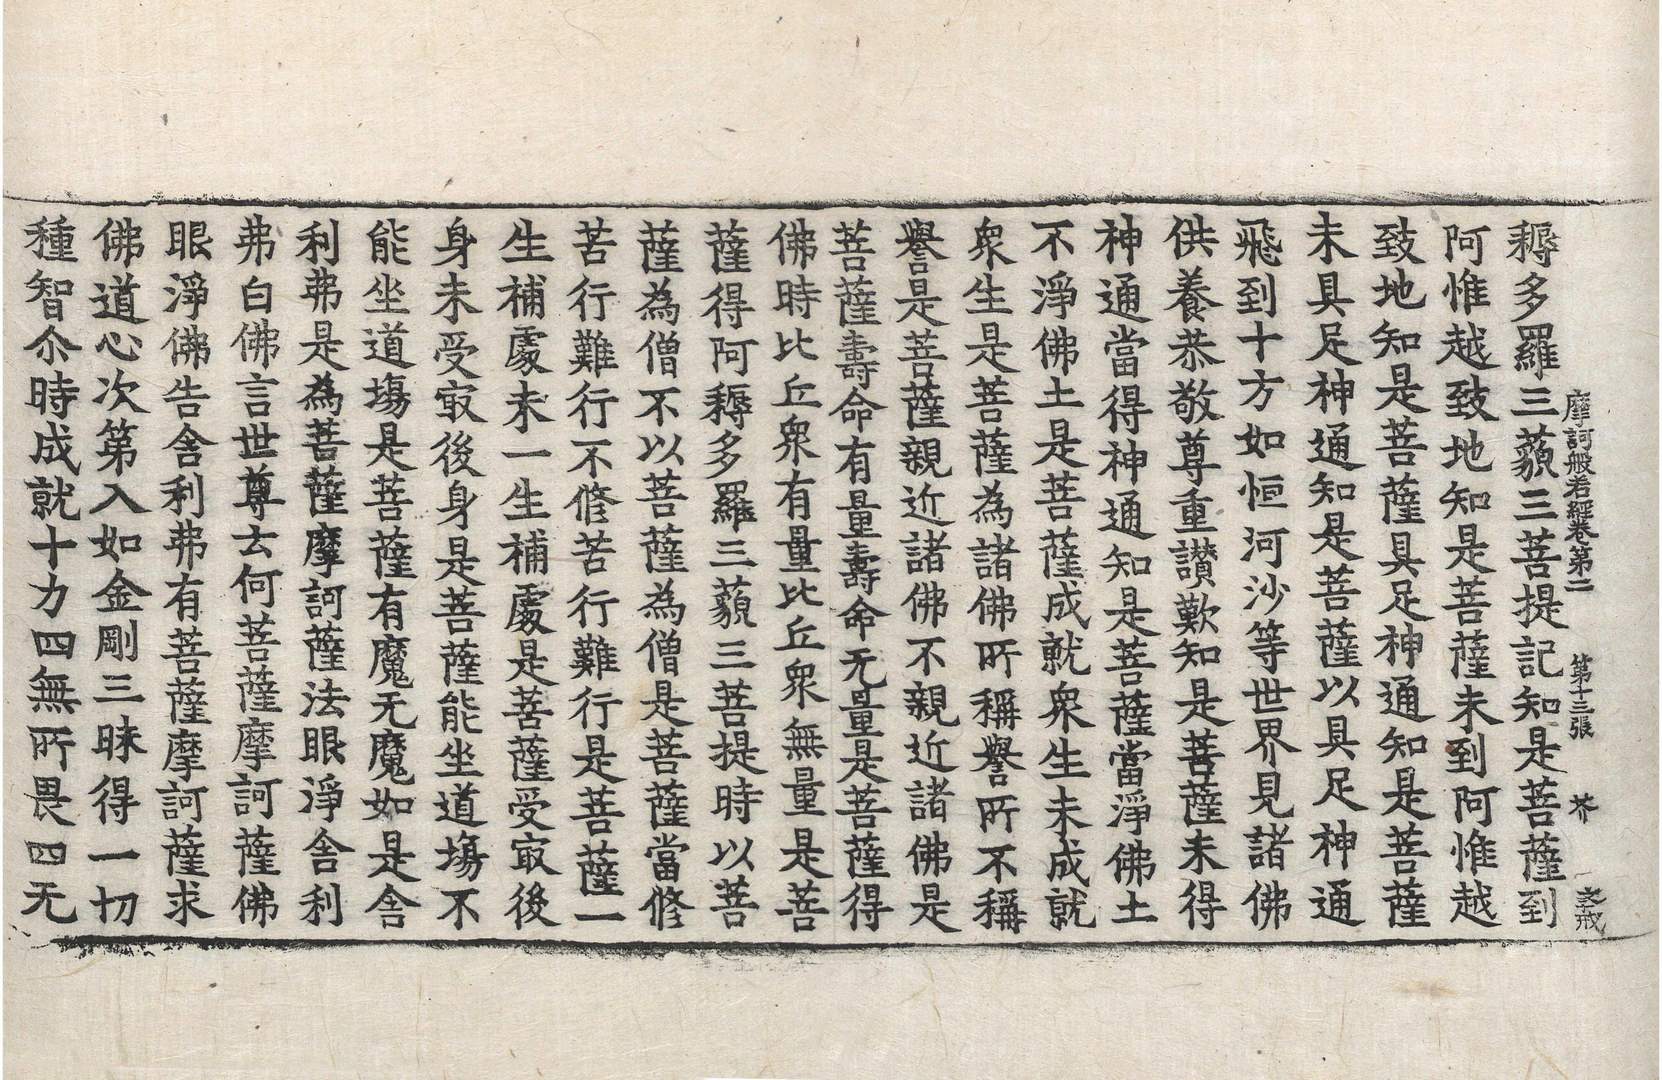 摩訶般若經卷第二　第十三張　芥
耨多羅三藐三菩提記知是菩薩到
阿惟越致地知是菩薩未到阿惟越
致地知是菩薩具足神通知是菩薩
未具足神通知是菩薩以具足神通
飛到十方如恒河沙等世界見諸佛
供養恭敬尊重讃歎知是菩薩未得
神通當得神通知是菩薩當淨佛土
不淨佛土是菩薩成就衆生未成就
衆生是菩薩為諸佛所稱譽所不稱
譽是菩薩親近諸佛不親近諸佛是
菩薩壽命有量壽命无量是菩薩得
佛時比丘衆有量比丘衆無量是菩
薩得阿耨多羅三藐三菩提時以菩
薩為僧不以菩薩為僧是菩薩當修
苦行難行不修苦行難行是菩薩一
生補處未一生補處是菩薩受㝡後
身未受㝡後身是菩薩能坐道場不
能坐道場是菩薩有魔无魔如是舍
利弗是為菩薩摩訶薩法眼淨舍利
弗白佛言世尊云何菩薩摩訶薩佛
眼淨佛告舍利弗有菩薩摩訶薩求
佛道心次第入如金剛三昧得一切
種智尒時成就十力四無所畏四无